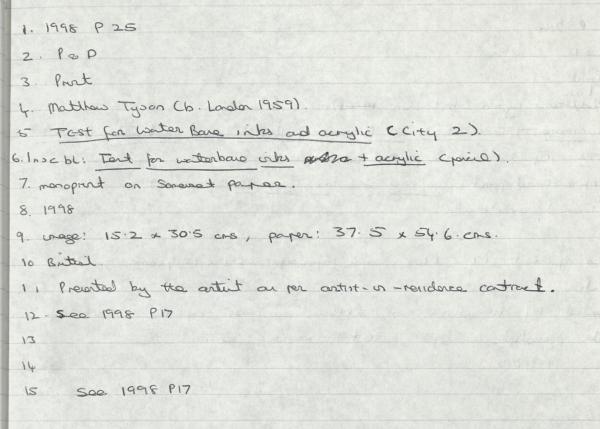 1. 1998 P 25
2. P & D
3. Print
4. Matthew Tyson (b. London 1959).
5 Test for Water Base inks ad acrylic (City 2).
6. Insc bl: Test for waterbase inks + acrylic (pencil).
7. monoprint on Somerset paper.
8. 1998
9. image: 15.2 x 30.5 cms, paper: 37.5 x 54.6 cms.
10 British
11. Presented by the artist as per artist-in-residence contract.
12. See 1998 P17
13
14
15 See 1998 P17